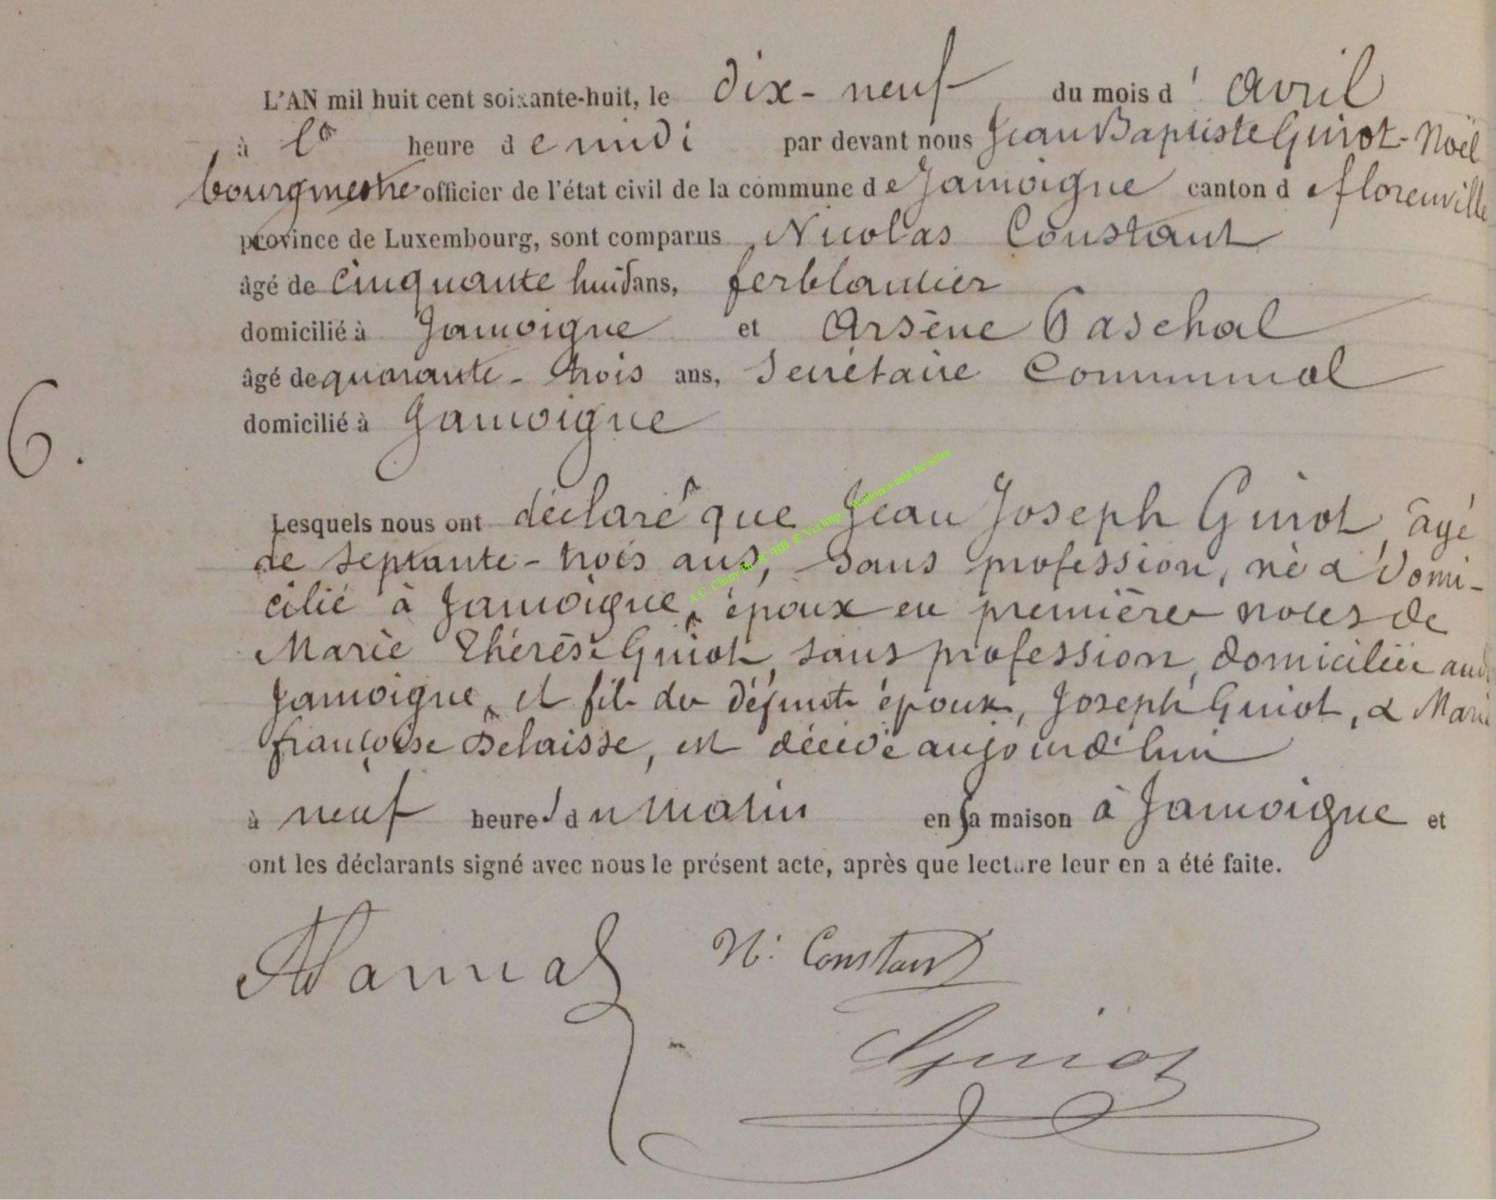 L'AN mil huit cent soixante-huit, le dix-neuf du mois d'avril
à l'a heure de midi par devant nous Jean Baptiste Guiot-Noël
bourgmestre officier de l'état civil de la commune de Jamoigne canton de florenville
province de Luxembourg, sont comparus Nicolas Constant
âgé de cinquante huit ans, ferblantier
domicilié à Jamoigne et Arsène Paschal
âgé de quarante-trois ans, Secrétaire Communal
domicilié à Jamoigne
6.
Lesquels nous ont déclaré que Jean Joseph Guiot, âgé
de septante-trois ans, sans profession, né & domi-
cilié à Jamoigne, époux en premières noces de
Marie Thérèse Guiot, sans profession, domiciliée
Jamoigne, et fils des défunts époux, Joseph Guiot, & Marie
françoise Delaisse, est décédé aujourd'hui
à neuf heures du matin en sa maison à Jamoigne et
ont les déclarants signé avec nous le présent acte, après que lecture leur en a été faite.
N. Constant
Guiot